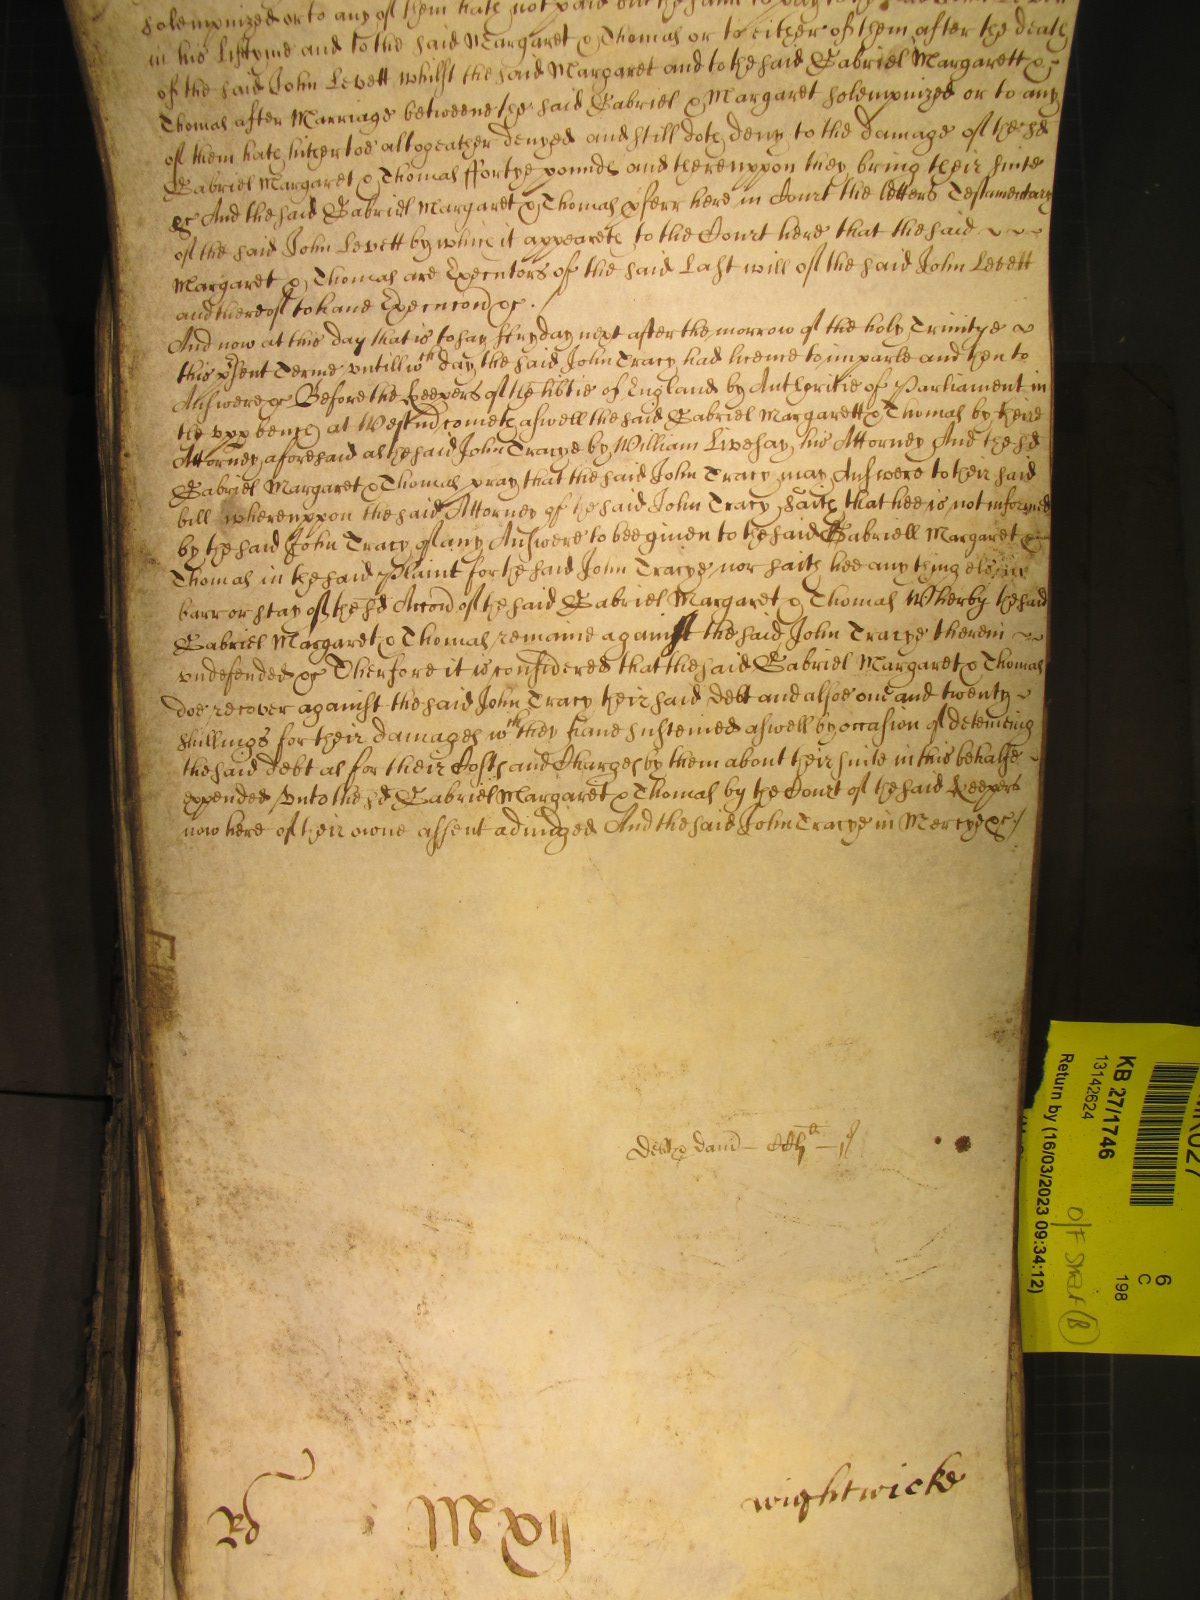 solempnized or to any of them hath not paid but the same to pay to the said
in his lifetyme and to the said Margaret & Thomas or to either of them after the death
of the said John Levett whilst the said Margaret and to the said Gabriel Margarett &
Thomas after Marriage betweene the said Gabriel & Margaret solempnized or to any
of them hath hitherto altogeather denyed and still doth deny to the damage of the sd
Gabriel Margaret & Thomas ffortye pounds and thereuppon they bring their suite
&c And the said Gabriel Margaret & Thomas pferr here in Court the letters Testamentary
of the said John Levett by which it appeareth to the Court here that the said
Margaret & Thomas are Executors of the said Last will of the said John Levett
and thereof to haue Execucon &c.
And now at this day that is to say ffryday next after the morrow of the holy Trinitye
this psent Terme vntill wch day the said John Tracy had licence to imparle and then to
Answere &c Before the keepers of the libtie of England by Authoritie of Parliament in
the vpp bench at Westm cometh aswell the said Gabriel Margarett & Thomas by their
Attorney aforesaid as the said John Tracye by William Livesay his Attorney And the sd
Gabriel Margaret & Thomas pray that the said John Tracy may Answere to their said
bill whereuppon the said Attorney of the said John Tracy saith that hee is not informed
by the said John Tracy of any Answere to bee giuen to the said Gabriell Margaret &
Thomas in the said Plaint for the said John Tracye nor saith hee any thing els in
barr or stay of the sd Accon of the said Gabriel Margaret & Thomas Wherby the said
Gabriel Margaret & Thomas remaine against the said John Tracye therein
vndefended &c Therfore it is considered that the said Gabriel Margaret & Thomas
doe recover against the said John Tracy their said debt and alsoe one and twenty
shillings for their damages wch they haue susteined aswell by occasion of deteineing
the said debt as for their Costs and Charges by them about their suite in this behalfe
expended vnto the sd Gabriel Margaret & Thomas by the Court of the said keepers
now here of their owne assent adiudged And the said John Tracye in Mercye &c/
Debt & dam
Ro
M xij
wightwicke
KB 27/1746
13142624
Return by (16/03/2023 09:34:12)
6
C
198